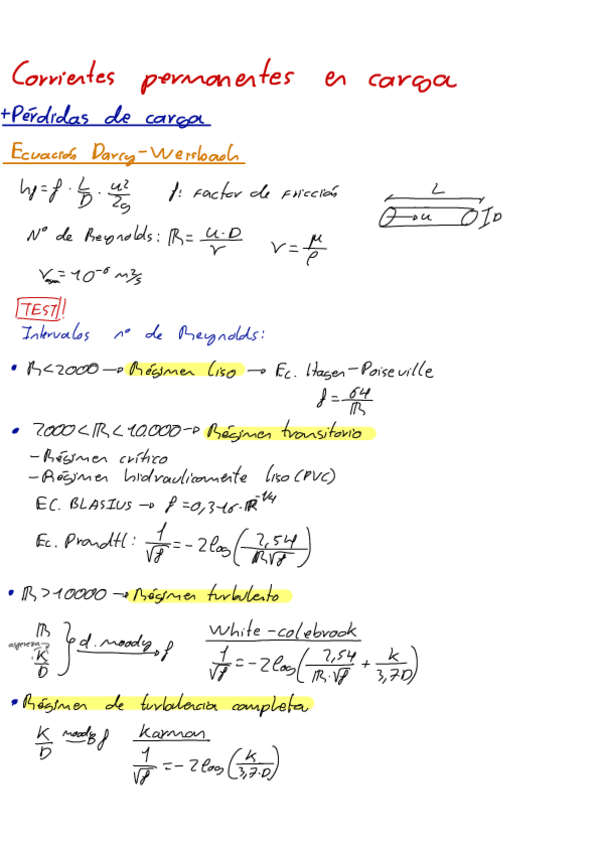 Corrientes permanentes en carga
+Pérdidas de carga
Ecuación Darcy-Weisbach
hf = f · L/D · u²/2g   f: Factor de Fricción   L
u   D
Nº de Reynolds: R = u·D/ν   ν = μ/ρ
ν = 10⁻⁶ m²/s
TEST!!
Intervalos nº de Reynolds:
• R<2000 → Régimen liso → Ec. Hagen-Poiseville
f = 64/R
• 2000<R<10.000 → Régimen transitorio
- Régimen crítico
- Régimen hidraulicamente liso (PVC)
EC. BLASIUS → f = 0,316·R^-1/4
Ec. Prandtl: 1/√f = -2log(2,54/R√f)
• R>10000 → Régimen turbulento
R   d. moody → f   White-colebrook
K/D   1/√f = -2log(2,54/R·√f + K/3,7D)
• Régimen de turbulencia completa
K/D moody → f   Karman
1/√f = -2log(K/3,7·D)